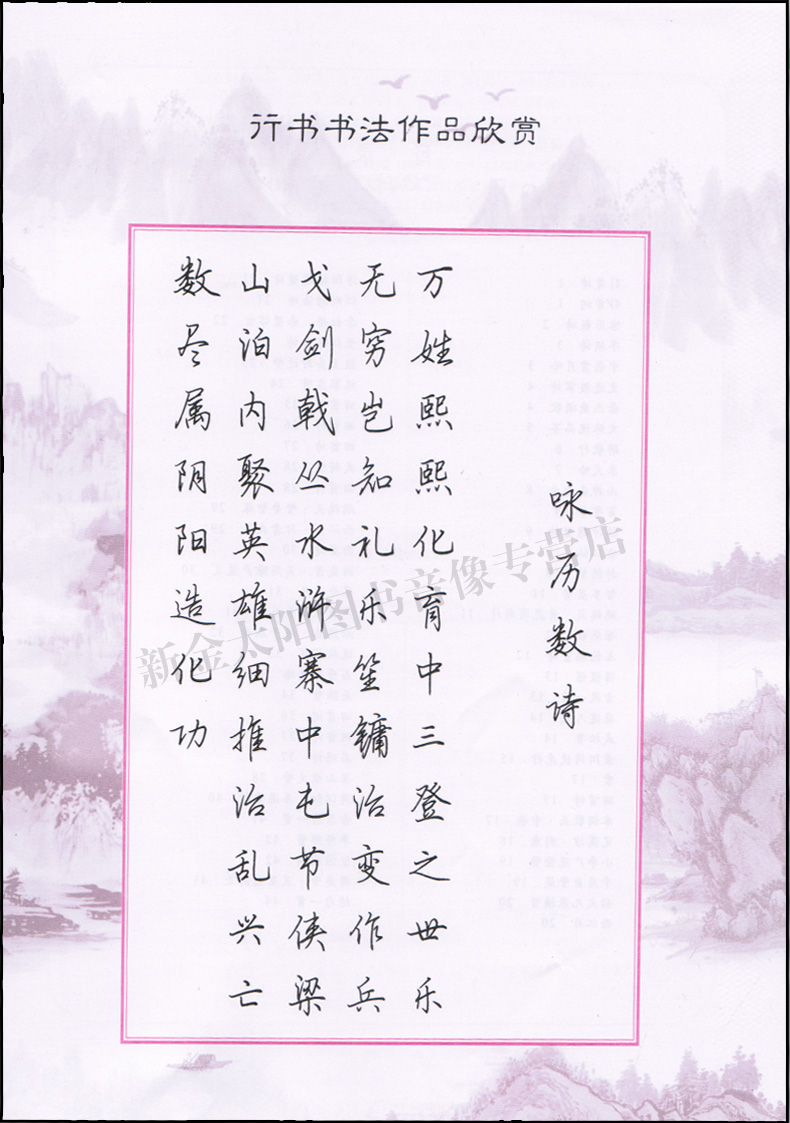 行书书法作品欣赏
咏历数诗
万姓熙熙化育中三登之世乐
无穷岂知礼乐笙镛治变作兵
戈剑戟丛水浒寨中屯节侠梁
山泊内聚英雄细推治乱兴亡
数尽属阴阳造化功
新金太阳图书音像专营店